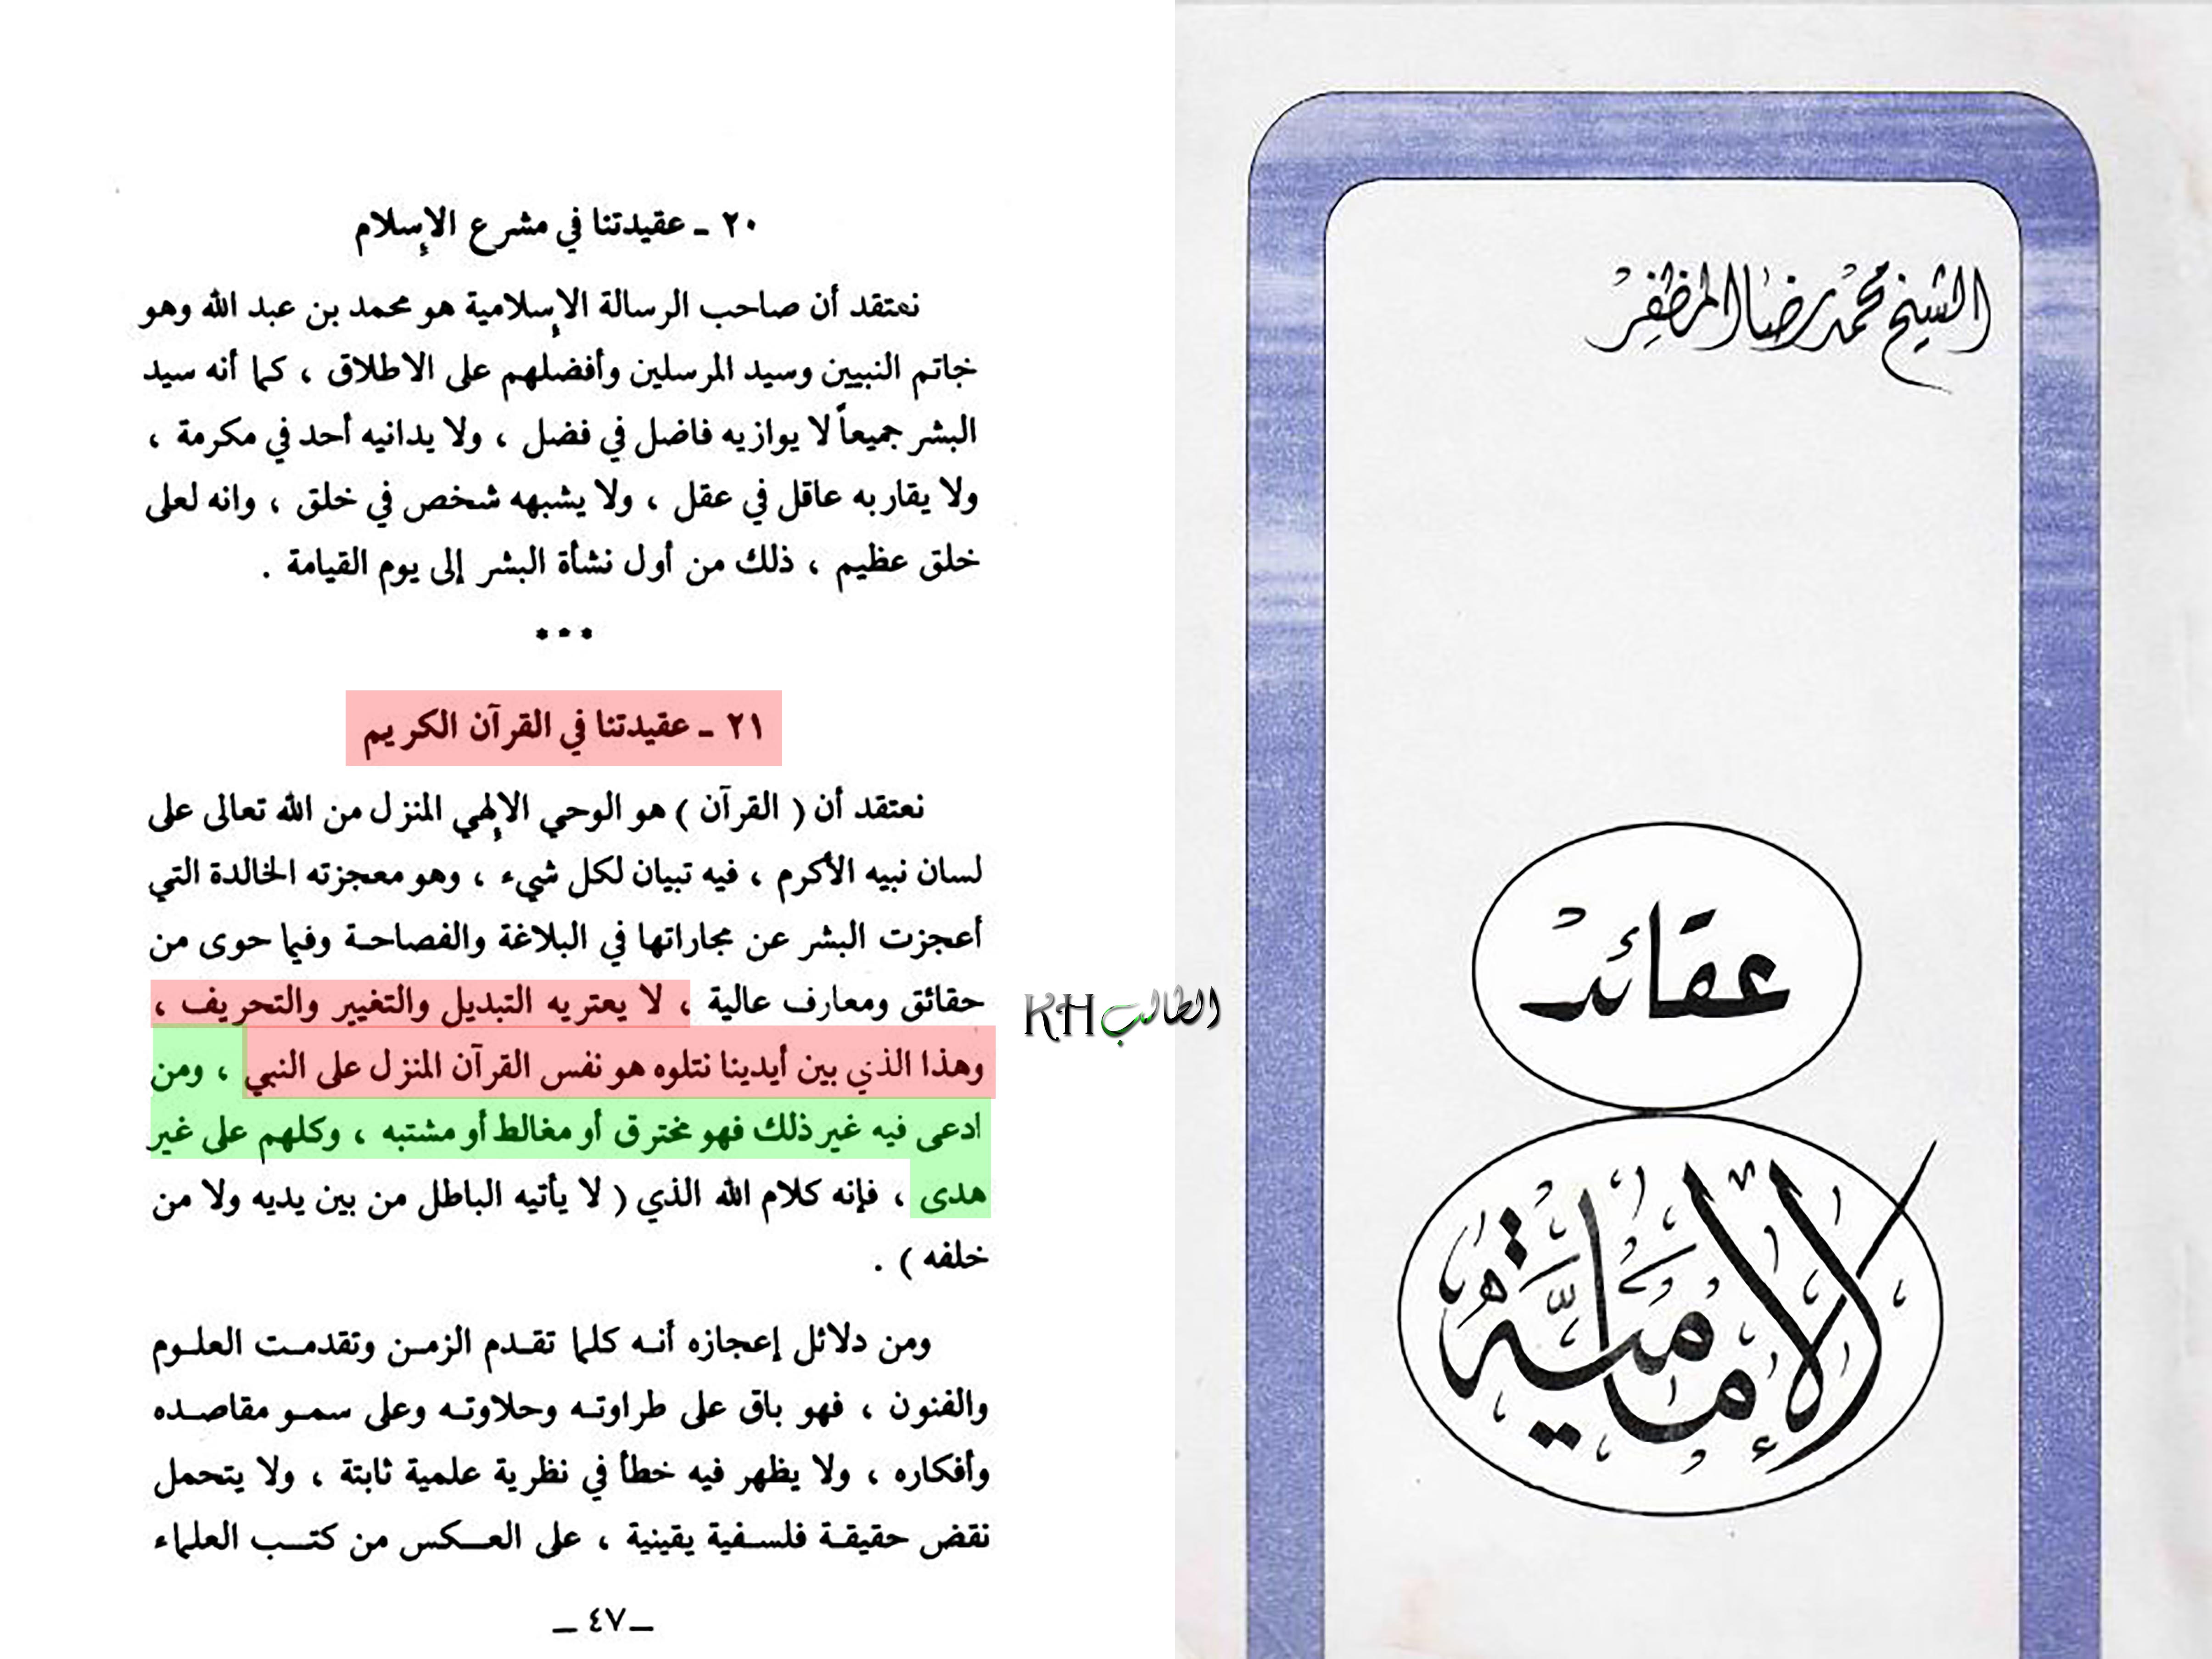 ٢٠ ـ عقيدتنا في مشرع الإسلام
نعتقد أن صاحب الرسالة الإسلامية هو محمد بن عبد الله وهو
خاتم النبيين وسيد المرسلين وأفضلهم على الاطلاق ، كما أنه سيد
البشر جميعاً لا يوازيه فاضل في فضل ، ولا يدانيه أحد في مكرمة ،
ولا يقاربه عاقل في عقل ، ولا يشبهه شخص في خلق ، وانه لعلى
خلق عظيم ، ذلك من أول نشأة البشر إلى يوم القيامة .
* * *
٢١ ـ عقيدتنا في القرآن الكريم
نعتقد أن ( القرآن ) هو الوحي الإلهي المنزل من الله تعالى على
لسان نبيه الأكرم ، فيه تبيان لكل شيء ، وهو معجزته الخالدة التي
أعجزت البشر عن مجاراتها في البلاغة والفصاحة وفيما حوى من
حقائق ومعارف عالية ، لا يعتريه التبديل والتغيير والتحريف ،
وهذا الذي بين أيدينا نتلوه هو نفس القرآن المنزل على النبي ، ومن
ادعى فيه غير ذلك فهو مخترق أو مغالط أو مشتبه ، وكلهم على غير
هدى ، فإنه كلام الله الذي ( لا يأتيه الباطل من بين يديه ولا من
خلفه ) .
ومن دلائل إعجازه أنه كلما تقدم الزمن وتقدمت العلوم
والفنون ، فهو باق على طراوته وحلاوته وعلى سمو مقاصده
وأفكاره ، ولا يظهر فيه خطأ في نظرية علمية ثابتة ، ولا يتحمل
نقض حقيقة فلسفية يقينية ، على العكس من كتب العلماء
ـ ٤٧ ـ
الطالب KH
الشيخ محمد رضا المظفر
عقائد
الإمامية